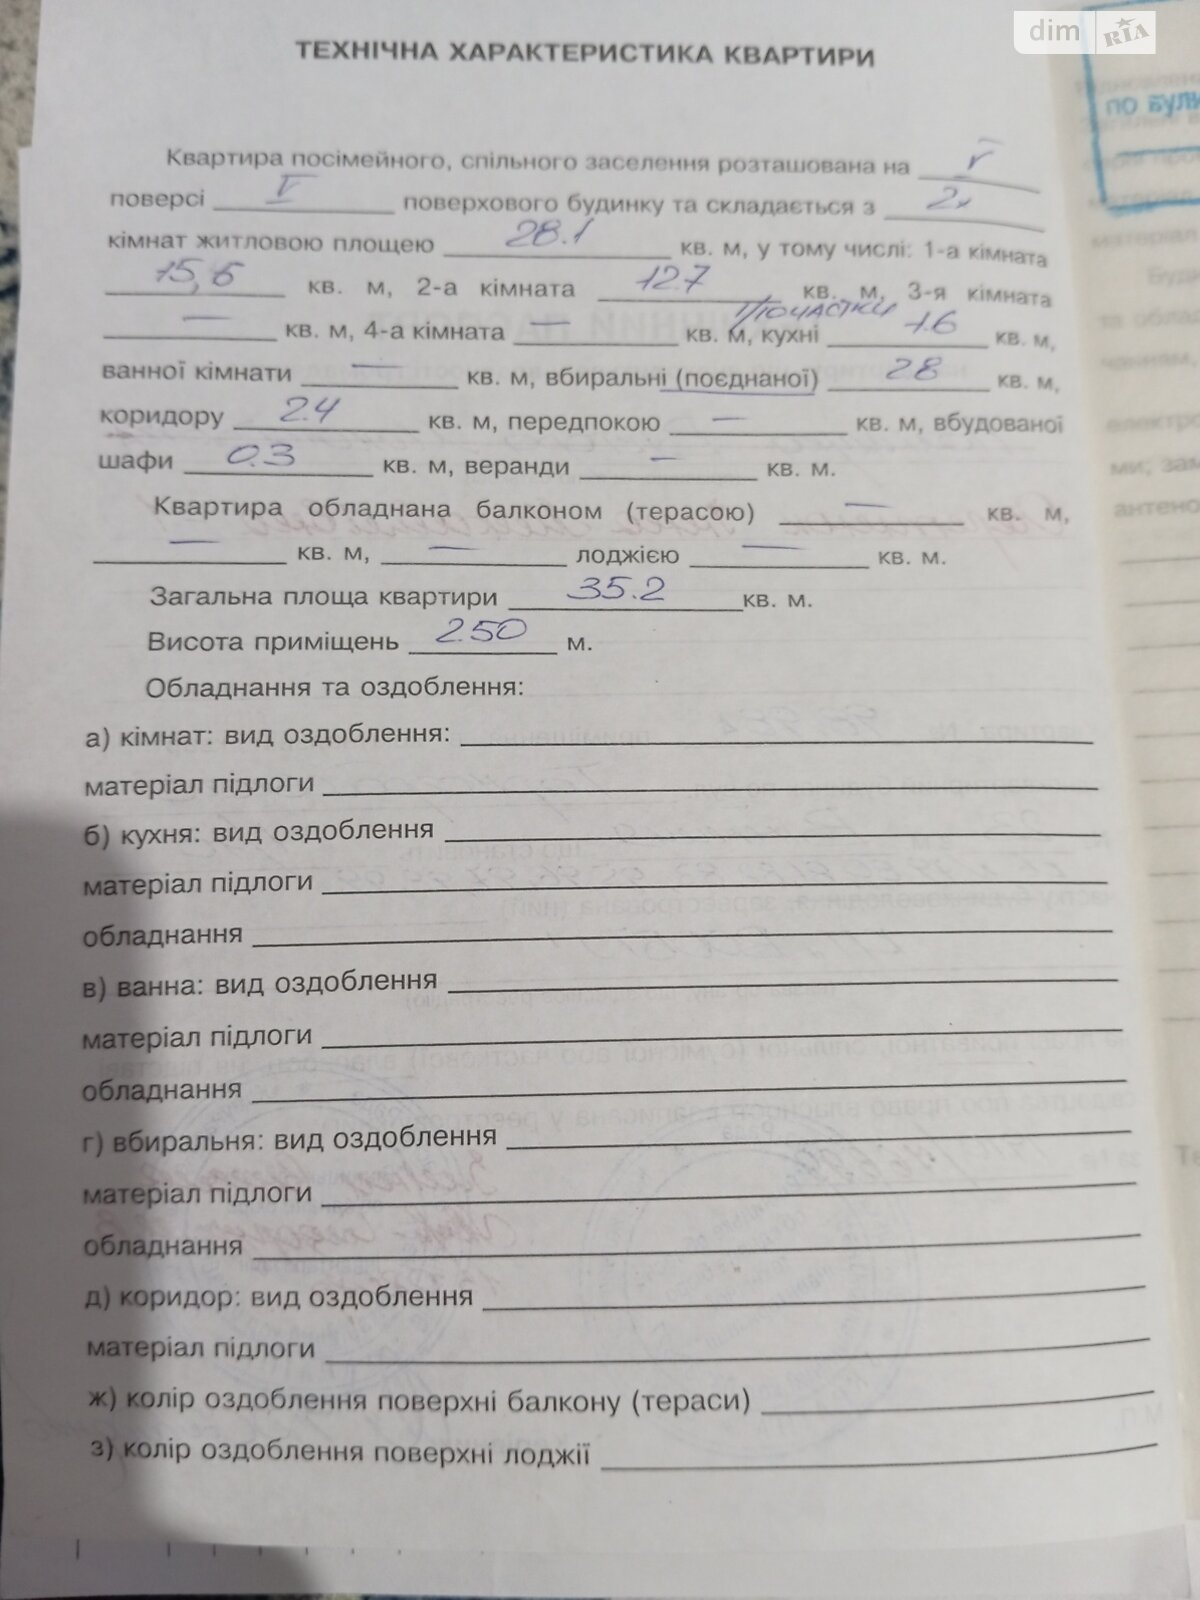 dim RIA
ТЕХНІЧНА ХАРАКТЕРИСТИКА КВАРТИРИ
по вули
Квартира посімейного, спільного заселення розташована на V
поверсі V поверхового будинку та складається з 2х
кімнат житловою площею 28.1 кв. м, у тому числі: 1-а кімната
кв. м, 2-а кімната 12.7 кв. м, 3-я кімната
— кв. м, 4-а кімната — кв. м, кухні 1.6 кв. м,
ванної кімнати — кв. м, вбиральні (поєднаної) 2.8 кв. м,
коридору 2.4 кв. м, передпокою — кв. м, вбудованої
шафи 0.3 кв. м, веранди — кв. м.
Квартира обладнана балконом (терасою) — кв. м,
— кв. м, — лоджією — кв. м.
Загальна площа квартири 35.2 кв. м.
Висота приміщень 2.50 м.
Обладнання та оздоблення:
а) кімнат: вид оздоблення:
матеріал підлоги
б) кухня: вид оздоблення
матеріал підлоги
обладнання
в) ванна: вид оздоблення
матеріал підлоги
обладнання
г) вбиральня: вид оздоблення
матеріал підлоги
обладнання
д) коридор: вид оздоблення
матеріал підлоги
ж) колір оздоблення поверхні балкону (тераси)
з) колір оздоблення поверхні лоджії